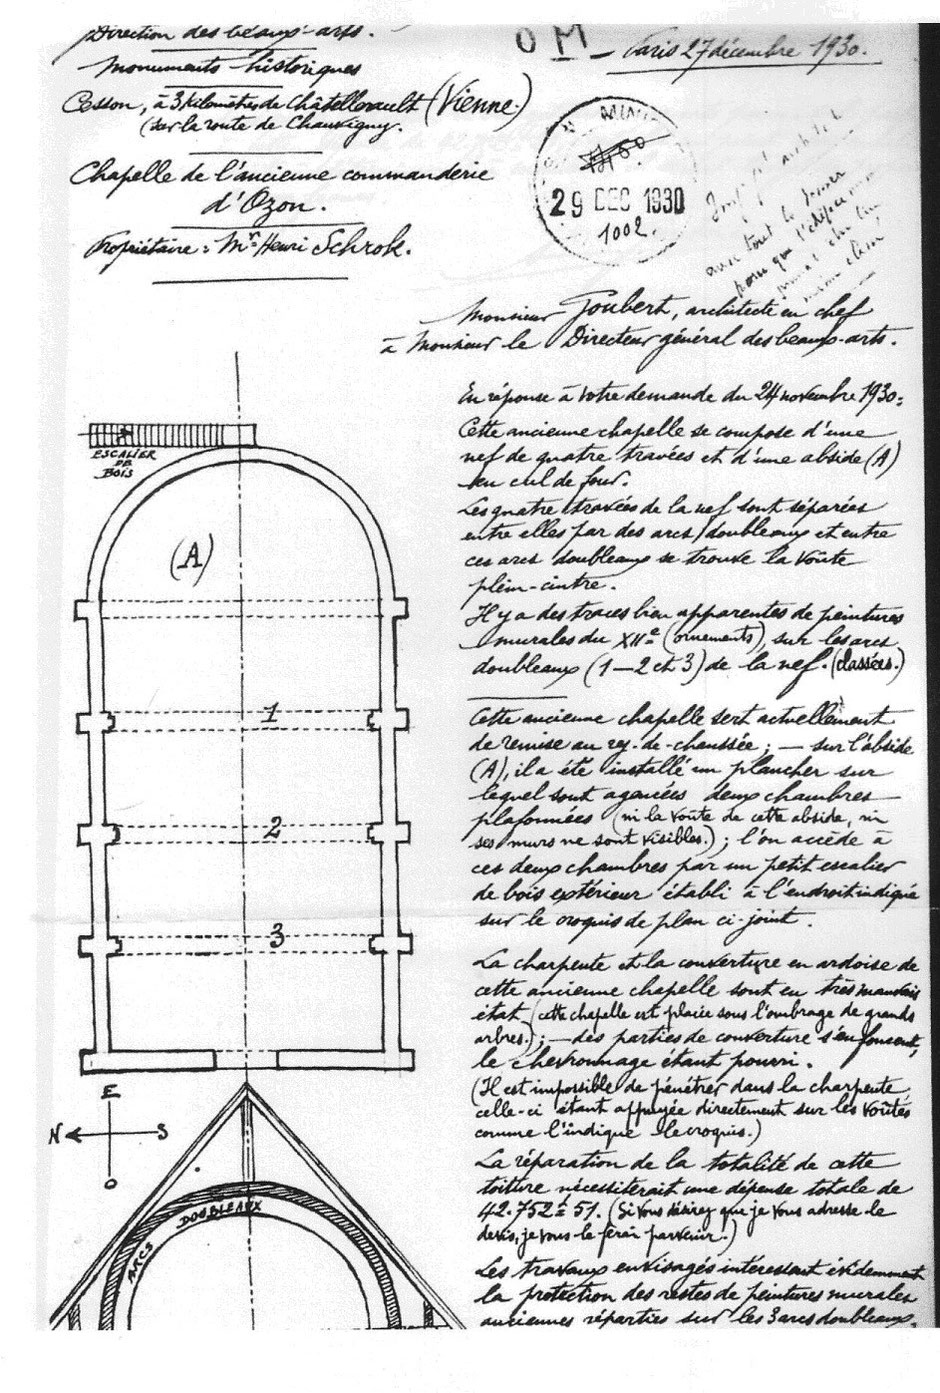 Direction des beaux-arts.
Monuments historiques
Cesson, à 3 kilomètres de Châtellerault (Vienne.)
(sur la route de Chauvigny.
Chapelle de l'ancienne commanderie
d'Ozon.
Propriétaire : Mr Henri Schrob.
OM
Paris 27 décembre 1930.
MINI
29 DEC 1930
1002.
architecte
avec tout le
pour que l'édifice
Monsieur Joubert, architecte en chef
à Monsieur le Directeur général des beaux-arts.
En réponse à votre demande du 24 novembre 1930:
Cette ancienne chapelle se compose d'une
nef de quatre travées et d'une abside (A)
en cul de four.
Les quatre travées de la nef sont séparées
entre elles par des arcs doubleaux et entre
ces arcs doubleaux se trouve la voûte
plein-cintre.
Il y a des traces bien apparentes de peintures
murales du XIIe (ornements), sur les arcs
doubleaux (1-2 et 3) de la nef. (classées.)
Cette ancienne chapelle sert actuellement
de remise au rez-de-chaussée ; — sur l'abside
(A), il a été installé un plancher sur
lequel sont agencées deux chambres
plafonnées (ni la voûte de cette abside, ni
ses murs ne sont visibles.) ; l'on accède à
ces deux chambres par un petit escalier
de bois extérieur établi à l'endroit indiqué
sur le croquis de plan ci-joint.
La charpente et la couverture en ardoise de
cette ancienne chapelle sont en très mauvais
état (cette chapelle est placée sous l'ombrage de grands
arbres.) ; — des parties de couverture s'enfoncent,
le chevronnage étant pourri.
(Il est impossible de pénétrer dans la charpente
celle-ci étant appuyée directement sur les voûtes
comme l'indique le croquis.)
La réparation de la totalité de cette
toiture nécessiterait une dépense totale de
42.752f 51. (Si vous désirez que je vous adresse le
devis, je vous le ferai parvenir.)
Les travaux envisagés intéressent évidemment
la protection des restes de peintures murales
anciennes réparties sur les 3 arcs doubleaux.
ESCALIER
DE
BOIS
(A)
1
2
3
E
N S
O
ARCS DOUBLEAUX